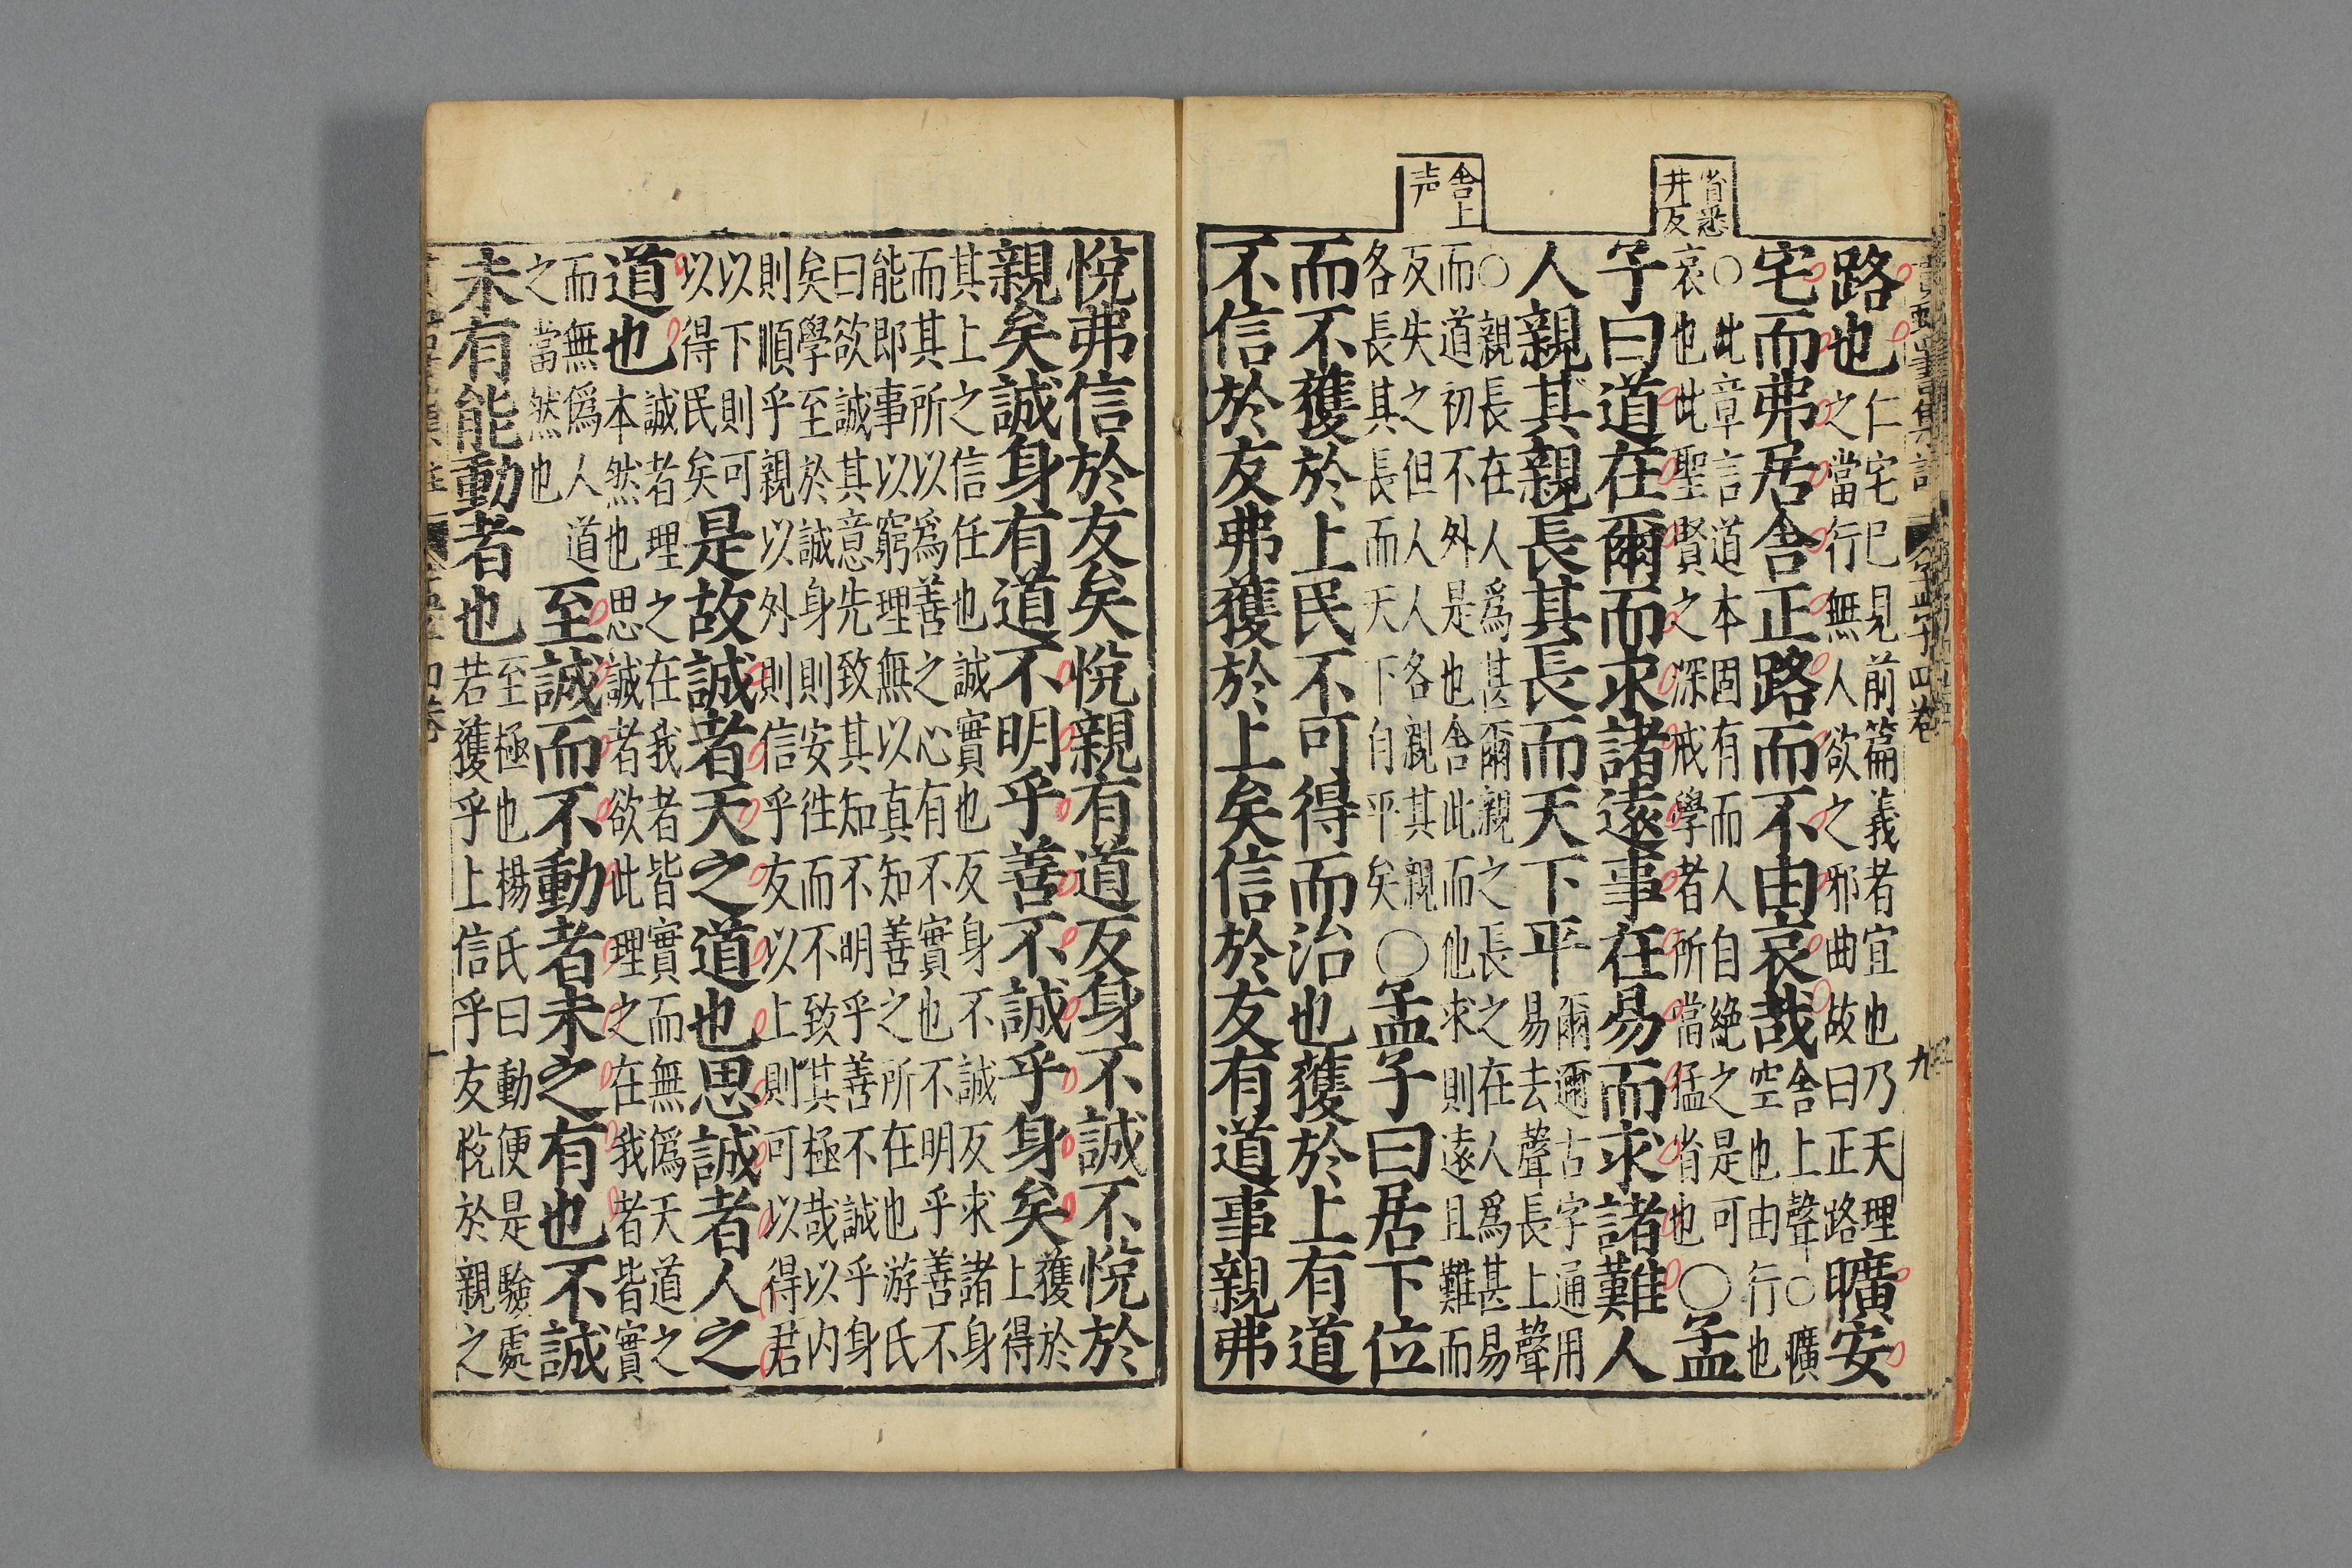 孟子四卷
九
路也仁宅已見前篇義者宜也乃天理之當行無人欲之邪曲故曰正路曠安
省悉井反
宅而弗居舍正路而不由哀哉舍上聲○曠空也由行也
○此章言道本固有而人自絕之是可哀也此聖賢之深戒學者所當猛省也○孟
子曰道在爾而求諸遠事在易而求諸難人
人親其親長其長而天下平爾邇古字通用易去聲長上聲
舍上声
○親長在人爲甚爾親之長之在人爲甚易而道初不外是也舍此而他求則遠且難而
反失之但人人各親其親各長其長而天下自平矣○孟子曰居下位
而不獲於上民不可得而治也獲於上有道
不信於友弗獲於上矣信於友有道事親弗
悅弗信於友矣悅親有道反身不誠不悅於
親矣誠身有道不明乎善不誠乎身矣獲於上得
其上之信任也誠實也反身不誠反求諸身而其所以爲善之心有不實也不明乎善不
能即事以窮理無以真知善之所在也游氏曰欲誠其意先致其知不明乎善不誠乎身
矣學至於誠身則安徃而不致其極哉以内則順乎親以外則信乎友以上則可以得君
以下則可以得民矣是故誠者天之道也思誠者人之
道也誠者理之在我者皆實而無僞天道之本然也思誠者欲此理之在我者皆實
而無僞人道之當然也至誠而不動者未之有也不誠
未有能動者也至極也楊氏曰動便是驗處若獲乎上信乎友悅於親之